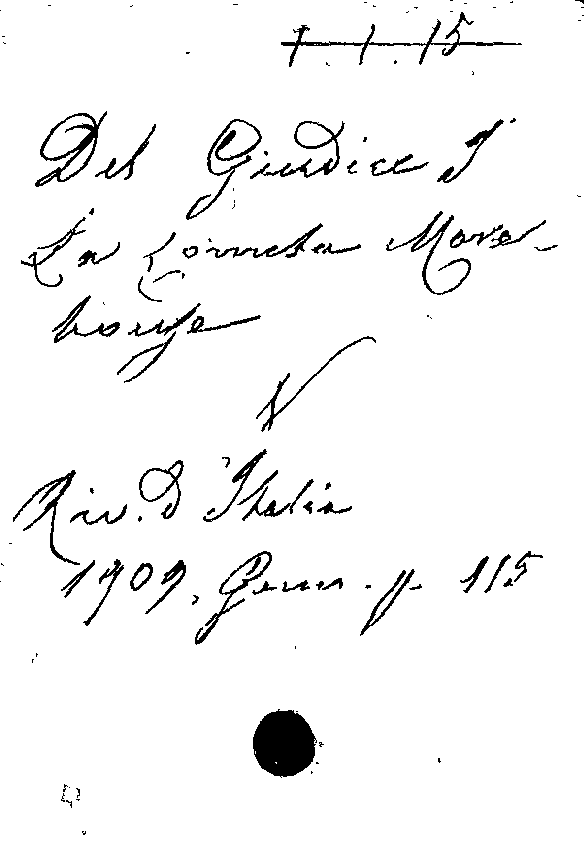 1.1.15
Del Giudice I
La Cometa More-
house
V
Riv. d'Italia
1909, Genn. p. 115